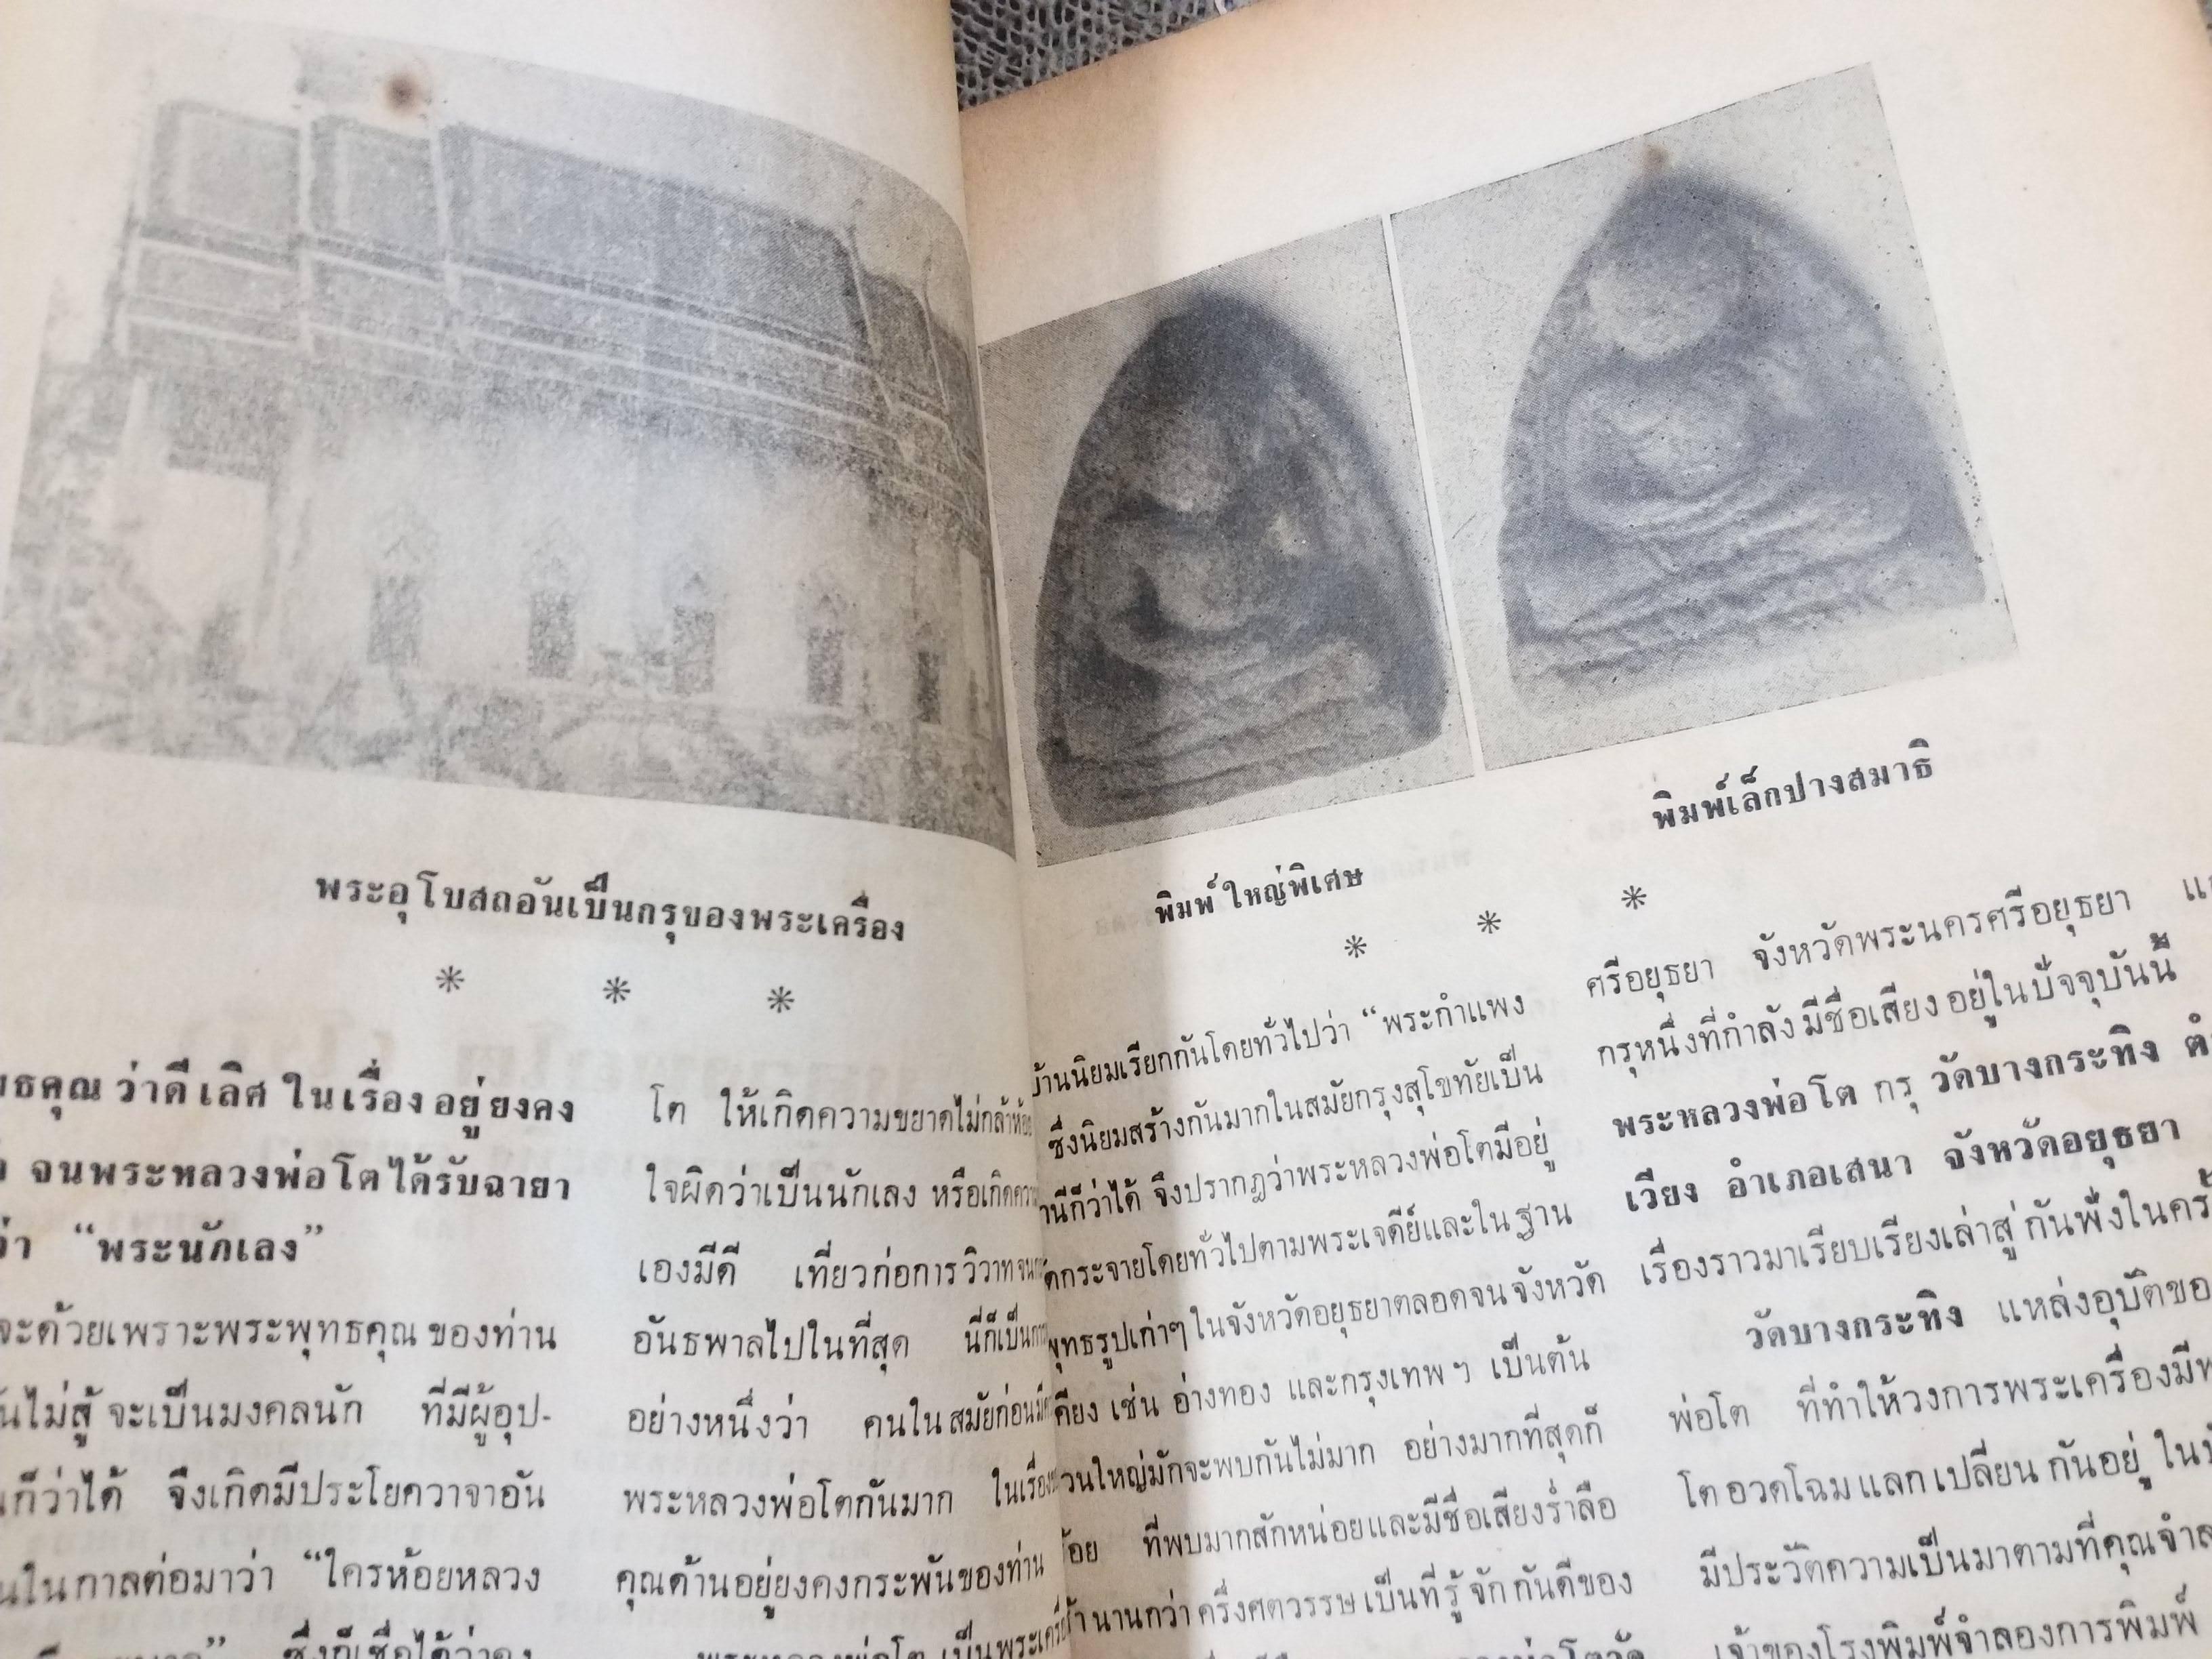 พระอุโบสถอันเป็นกรุของพระเครื่อง
* * *
ว่าดีเลิศ ในเรื่อง อยู่ยงคง
จนพระหลวงพ่อโตได้รับฉายา
“พระนักเลง”
จะด้วยเพราะพระพุทธคุณ ของท่าน
ไม่สู้ จะเป็นมงคลนัก ที่มีผู้อุป-
ก็ว่าได้ จึงเกิดมีประโยควาจาอัน
ในกาลต่อมาว่า “ใครห้อยหลวง
ซึ่งก็เชื่อได้ว่าคง
โต ให้เกิดความขยาดไม่กล้าห้อย
ใจผิดว่าเป็นนักเลง หรือเกิด
เองมีดี เที่ยวก่อการวิวาท
อันธพาลไปในที่สุด นี่ก็เป็น
อย่างหนึ่งว่า คนใน สมัยก่อน
พระหลวงพ่อโตกันมาก ในเรื่อง
คุณด้านอยู่ยงคงกระพันของท่าน
พระหลวงพ่อโต เป็นพระเครื่อง
พิมพ์ใหญ่พิเศษ
พิมพ์เล็กปางสมาธิ
* * *
บ้านนิยมเรียกกันโดยทั่วไปว่า “พระกำแพง
ซึ่งนิยมสร้างกันมากในสมัยกรุงสุโขทัยเป็น
ก็ว่าได้ จึงปรากฏว่าพระหลวงพ่อโตมีอยู่
กระจายโดยทั่วไปตามพระเจดีย์และใน ฐาน
พุทธรูปเก่าๆ ในจังหวัดอยุธยาตลอดจน จังหวัด
เคียง เช่น อ่างทอง และกรุงเทพ ฯ เป็นต้น
ส่วนใหญ่มักจะพบกันไม่มาก อย่างมากที่สุดก็
ที่พบมากสักหน่อยและมีชื่อเสียงร่ำลือ
นานกว่า ครึ่งศตวรรษ เป็นที่รู้ จัก กันดีของ
ศรีอยุธยา จังหวัดพระนครศรีอยุธยา
กรุหนึ่งที่กำลัง มีชื่อเสียง อยู่ในปัจจุบันนี้
พระหลวงพ่อโต กรุ วัดบางกระทิง
เวียง อำเภอเสนา จังหวัดอยุธยา
เรื่องราวมาเรียบเรียงเล่าสู่ กันฟังใน
วัดบางกระทิง แหล่งอุบัติของ
พ่อโต ที่ทำให้วงการพระเครื่อง
โต อวดโฉม แลก เปลี่ยน กันอยู่
มีประวัติความเป็นมาตามที่คุณ
เจ้าของโรงพิมพ์จำลองการพิมพ์